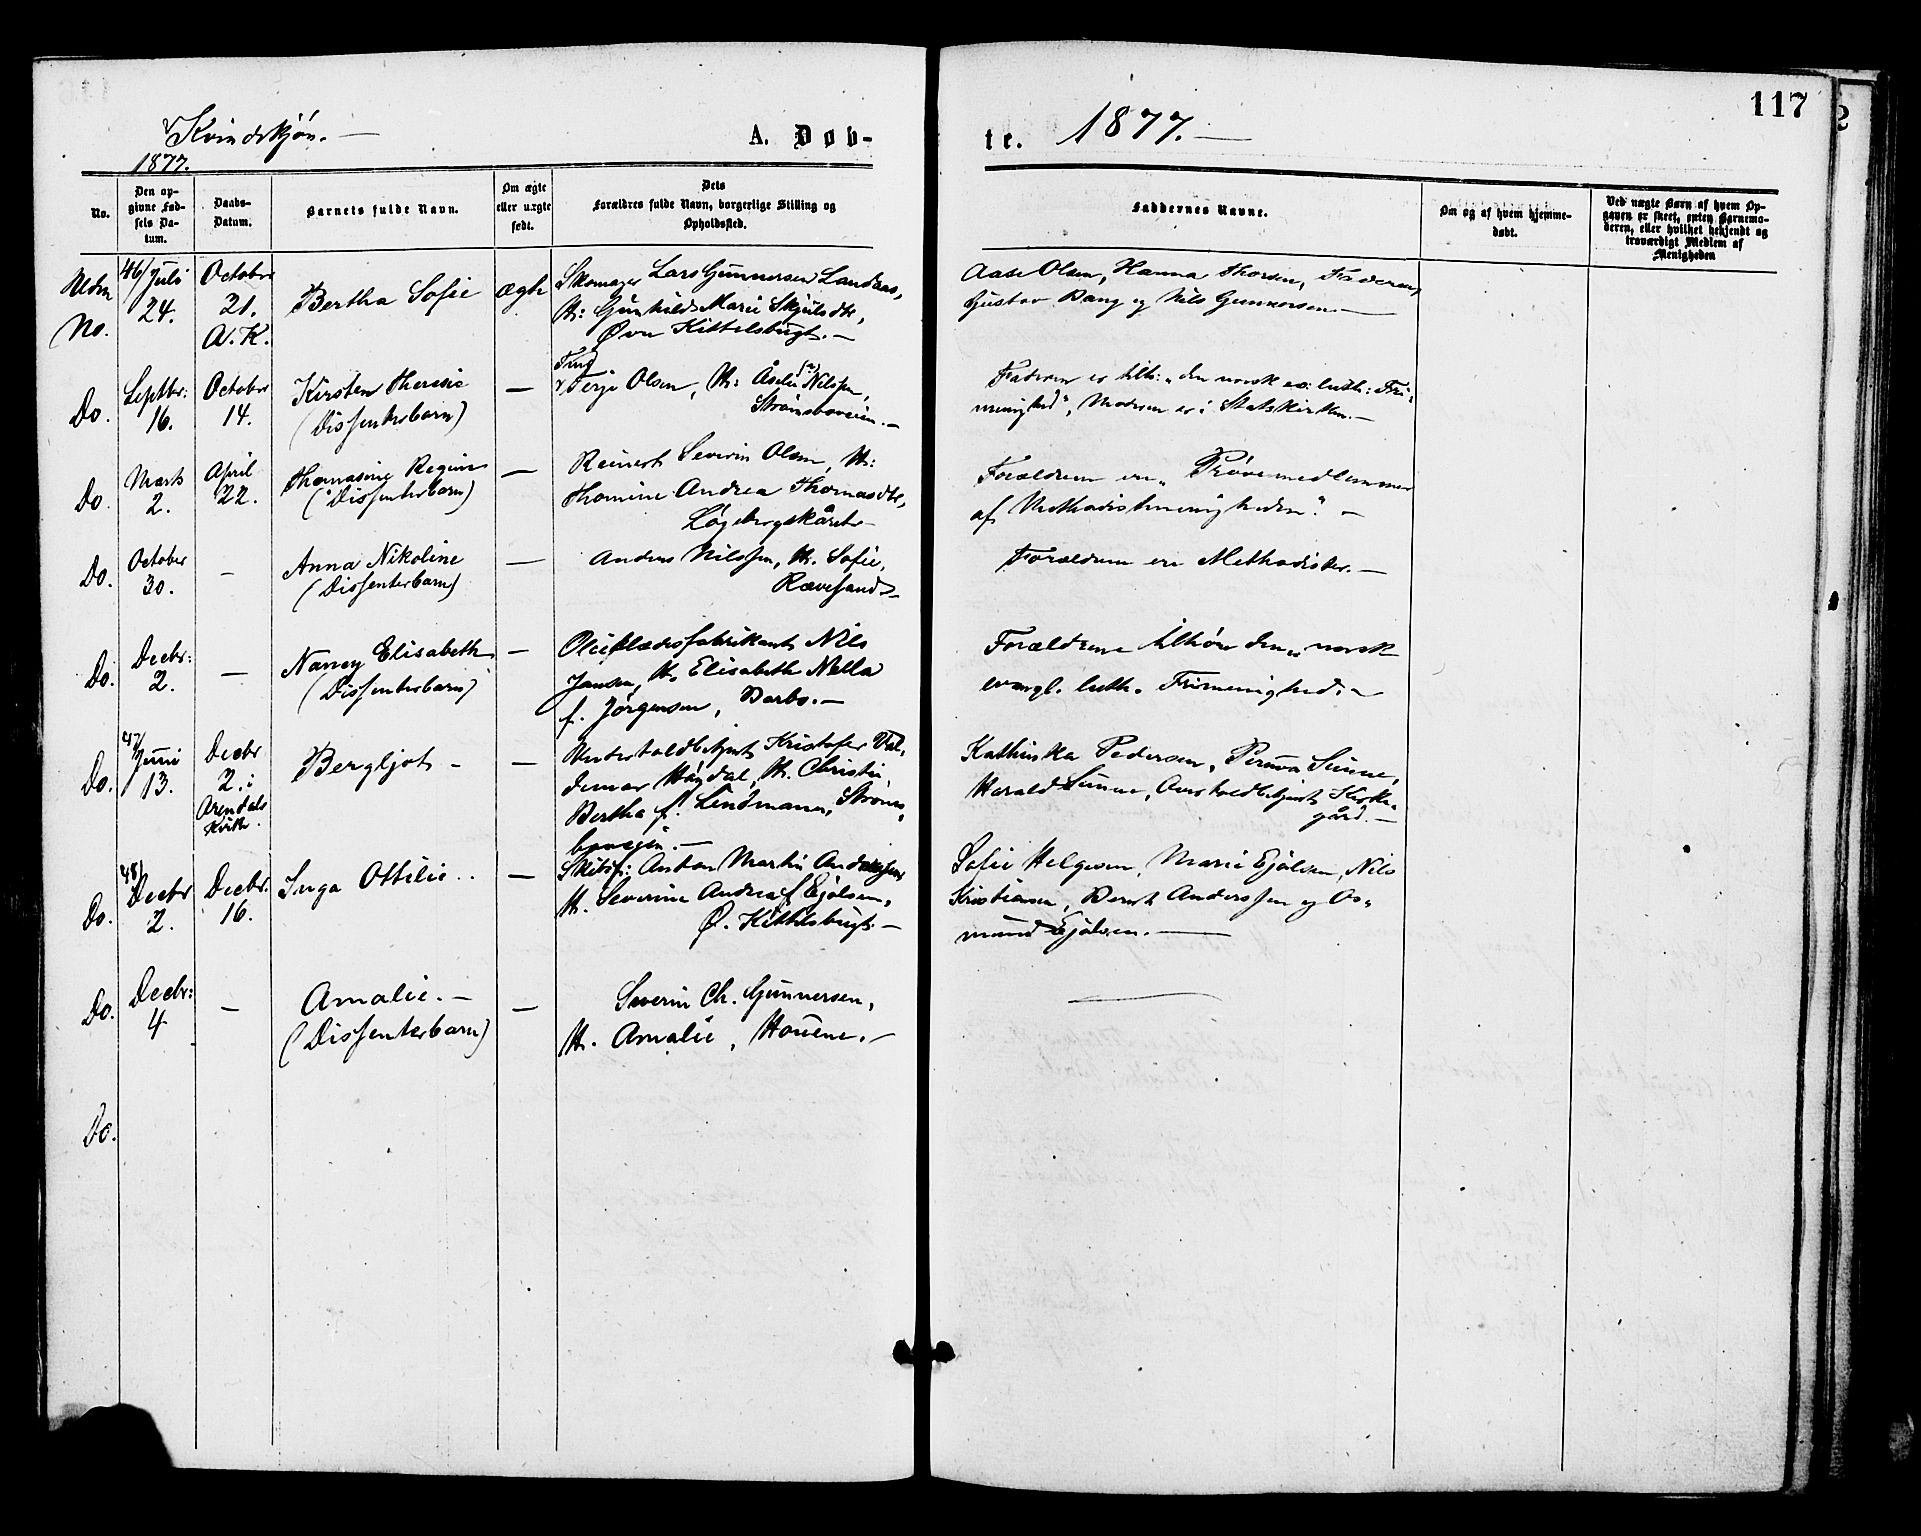 117
Kvindekjøn. —
A. Døb-
te. 1877. —
1877.
No.
Den op-
givne Fød-
sels Da-
tum.
Daabs-
Datum.
Barnets fulde Navn.
Om ægte
eller uægte
født.
Dets
Forældres fulde Navn, borgerlige Stilling og
Opholdssted.
Faddernes Navne.
Om og af hvem hjemme-
døbt.
Ved uægte Børn af hvem Op-
gaven er skeet, enten Barnemo-
deren, eller hvilket bekjendt og
troværdigt Medlem af
Menigheden
Uden
No.
46/ Juli
24.
October
21.
A. K.
Bertha Sofie
ægte
Skomager Lars Gunnersen Landaas,
H: Gunhild Marie Skjulsdtr,
Øvre Kittelsbugt. —
Aase Olsen, Hanna Thorsen, Faderen,
Gustav Dang og Nils Gunnersen —
Do.
Septbr:
16.
October
14.
Kirsten Theresie
(Dissenterbarn)
—
Terje Olsen, H: Åselie Nilsen,
Strømsboveien. —
Faderen er tilh: „den norsk ev: luth: Fri-
menighed", Moderen er i Statskirken. —
Do.
Marts
2.
April
22.
Thomasine Regine
(Dissenterbarn)
—
Reinert Severin Olsen, H:
Thomine Andrea Thomasdtr,
Løgebergskåret —
Forældrene ere „Prøvemedlemmer
af Methodistmenigheden". —
Do.
October
30.
—
Anna Nikoline
(Dissenterbarn)
—
Anders Nilssen, H. Sofie,
Rævesand —
Forældrene ere Methodister. —
Do.
Decbr:
2.
—
Nancy Elisabeth
(Dissenterbarn)
—
Oliekladesfabrikant Nils
Jansen, H. Elisabeth Nella
f. Jørgensen, Barbo. —
Forældrene tilhøre den „norsk
evangl. luth. Frimenighed. —
Do.
47/
Juni
13.
Decbr
2. i
Arendals
Kirke.
Bergljot —
—
Undertoldbetjent Kristofer Val-
demar Høydal, H. Christie
Bertha f. Lindmann, Strøms-
boveien. —
Kathinka Pedersen, Petrova Sunne,
Harald Sunne, Overtoldbetjent Kirke-
gård. —
Do.
48/
Decbr
2.
Decbr.
16.
Inga Ottilie ..
—
Skibsf: Anton Martin Anderssen
H. Severine Andrea f. Ejolsen,
Ø. Kittelsbugt. —
Sofie Helgesen, Marie Ejolsen, Nils
Kristiansen, Bernt Anderssen og Os-
mund Ejolsen. —
Do.
Decbr:
4
—
Amalie. —
(Dissenterbarn)
—
Severin Ch. Gunnersen,
H. Amalie, Houene. —
Do.